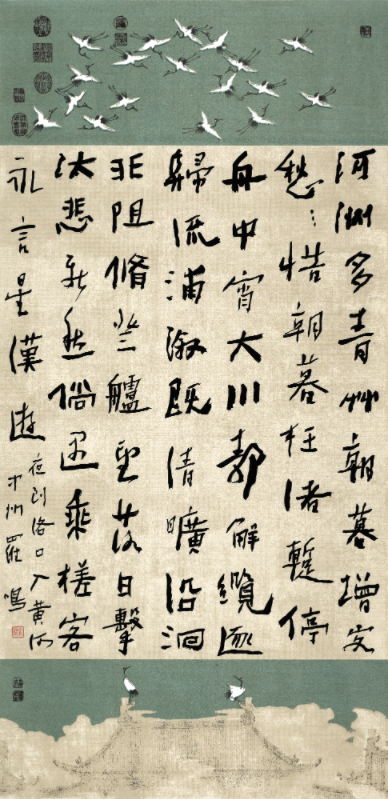 河洲多青艸朝暮增客
愁〻惜朝暮枉渚蹔停
舟中宵大川静解纜逐
歸流浦溆既清曠沿洄
非阻脩登艫望落日擊
汰悲新倘遇乘槎客
永言星漢遊
夜到洛口入黄河
中州羅鳴